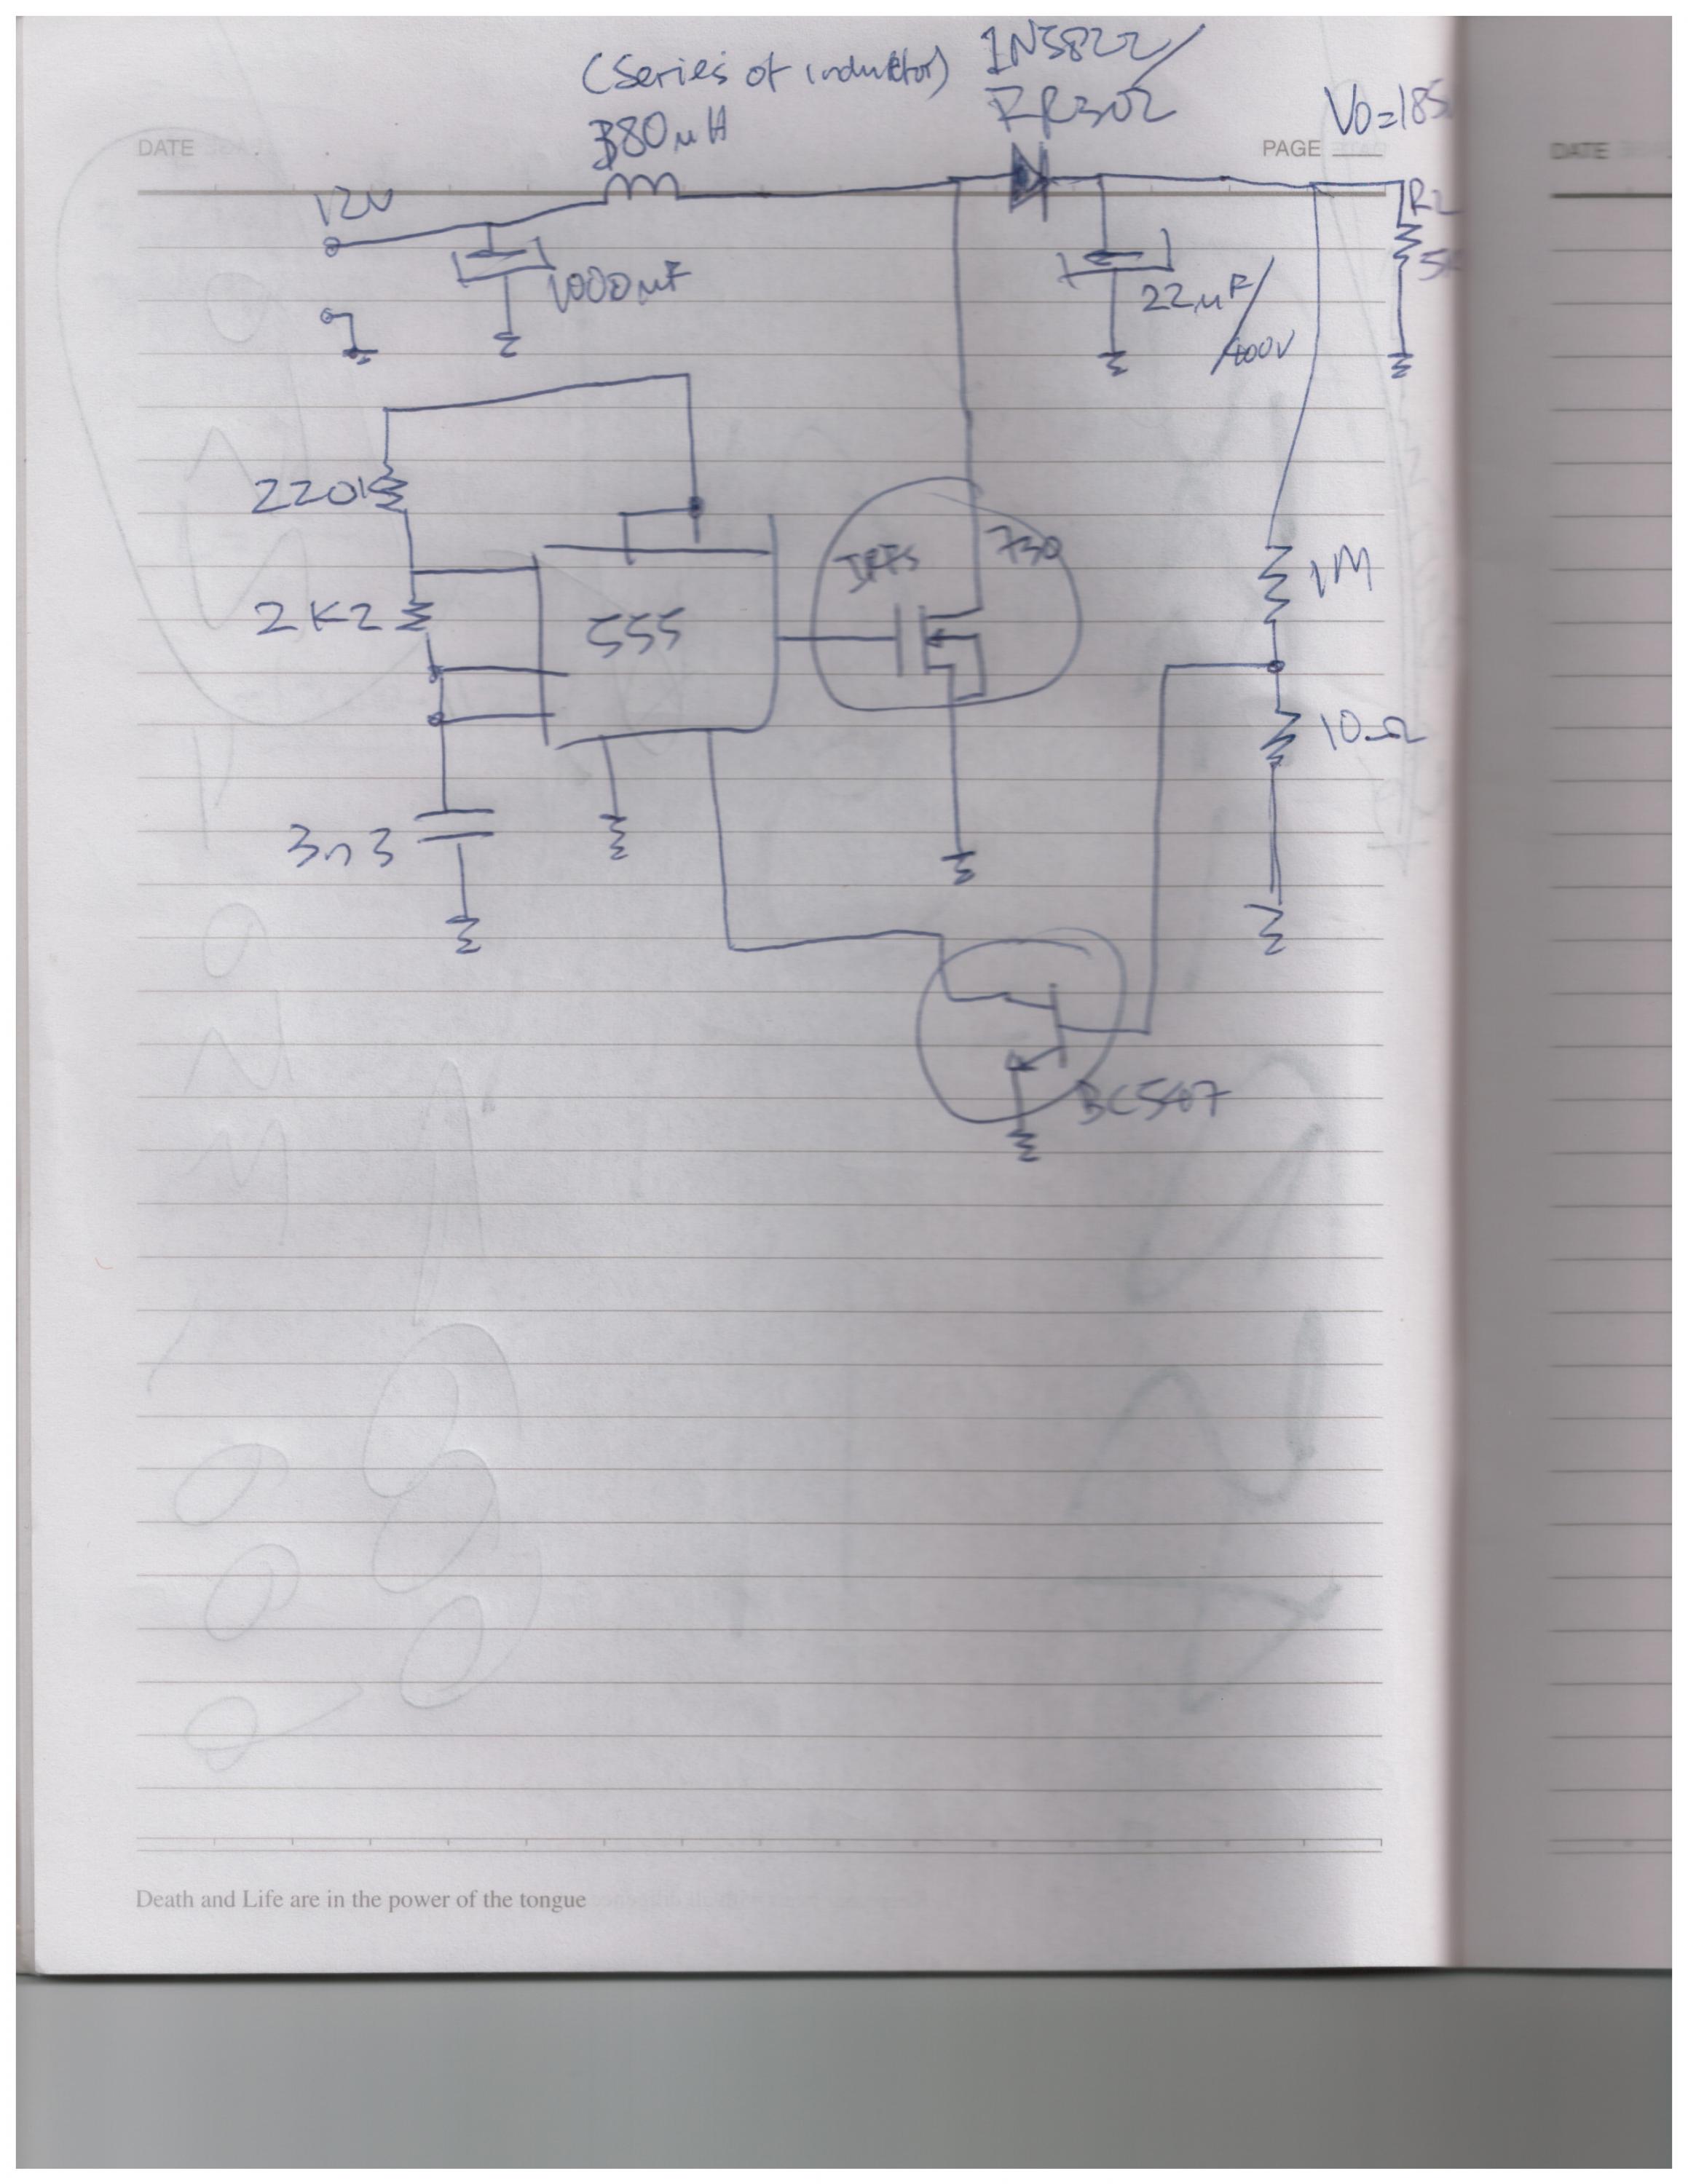 (Series of inductor)
1N5822/
380µH
Vo=185
DATE
PAGE
DATE
12V
RL
1000µF
22µF/
400V
5K
220K
730
1M
2K2
555
10Ω
3n3
BC547
Death and Life are in the power of the tongue